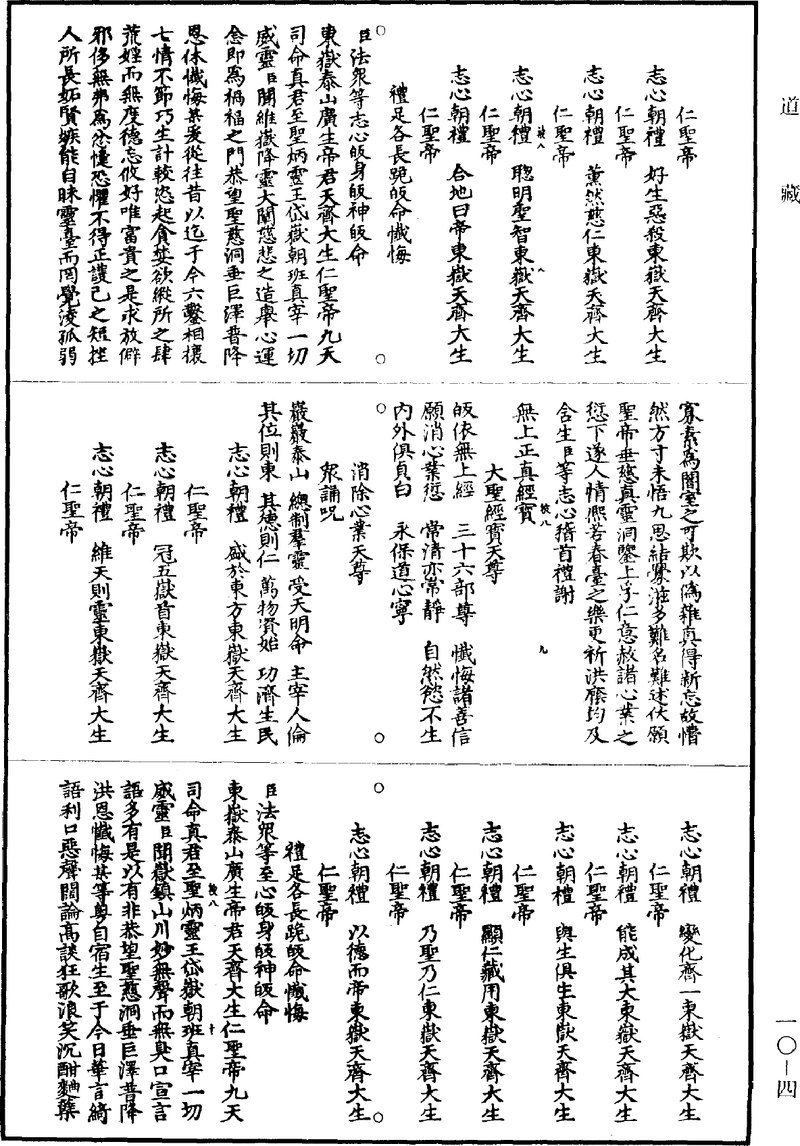 道藏
仁聖帝
志心朝禮　好生惡殺東嶽天齊大生
仁聖帝
志心朝禮　薰然慈仁東嶽天齊大生
仁聖帝
志心朝禮　聰明聖智東嶽天齊大生
仁聖帝
志心朝禮　合地曰帝東嶽天齊大生
仁聖帝
禮足各長跪皈命懺悔
臣法眾等志心皈身皈神皈命
東嶽泰山廣生帝君天齊大生仁聖帝九天
司命真君至聖炳靈王岱嶽朝班真宰一切
威靈臣聞維嶽降靈大闡慈悲之造舉心運
念即為禍福之門恭望聖慈洞垂巨澤普降
恩休懺悔某爰從往昔以迄于今六鑿相攘
七情不節巧生計較恣起貪婪欲縱所之肆
荒婬而無度德忘攸好唯富貴之是求放僻
邪侈無弗為忿懥恐懼不得正護己之短挫
人所長妬賢嫉能自昧靈臺而罔覺淩孤弱
寡素為闇室之可欺以偽雜真得新忘故懵
然方寸未悟九思結釁滋多難名難述伏願
聖帝垂慈真靈洞鑒上孚仁意赦諸心業之
愆下遂人情熙若春臺之樂更祈洪廕均及
含生臣等志心稽首禮謝
無上正真經寶
大聖經寶天尊
皈依無上經　三十六部尊　懺悔諸善信
願消心業愆　常清亦常靜　自然慾不生
內外俱貞白　永保道心寧
消除心業天尊
眾誦咒
巖巖泰山　總制羣靈　受天明命　主宰人倫
其位則東　其德則仁　萬物資始　功濟生民
志心朝禮　盛於東方東嶽天齊大生
仁聖帝
志心朝禮　冠五嶽首東嶽天齊大生
仁聖帝
志心朝禮　維天則靈東嶽天齊大生
仁聖帝
志心朝禮　變化齊一東嶽天齊大生
仁聖帝
志心朝禮　能成其大東嶽天齊大生
仁聖帝
志心朝禮　與生俱生東嶽天齊大生
仁聖帝
志心朝禮　顯仁藏用東嶽天齊大生
仁聖帝
志心朝禮　乃聖乃仁東嶽天齊大生
仁聖帝
志心朝禮　以德而帝東嶽天齊大生
仁聖帝
禮足各長跪皈命懺悔
臣法眾等至心皈身皈神皈命
東嶽泰山廣生帝君天齊大生仁聖帝九天
司命真君至聖炳靈王岱嶽朝班真宰一切
威靈臣聞嶽鎮山川妙無聲而無臭口宣言
語多有是以有非恭望聖慈洞垂巨澤普降
洪恩懺悔某等身自宿生至于今日華言綺
語利口惡聲闊論高談狂歌浪笑沉酣麯櫱
一〇－四